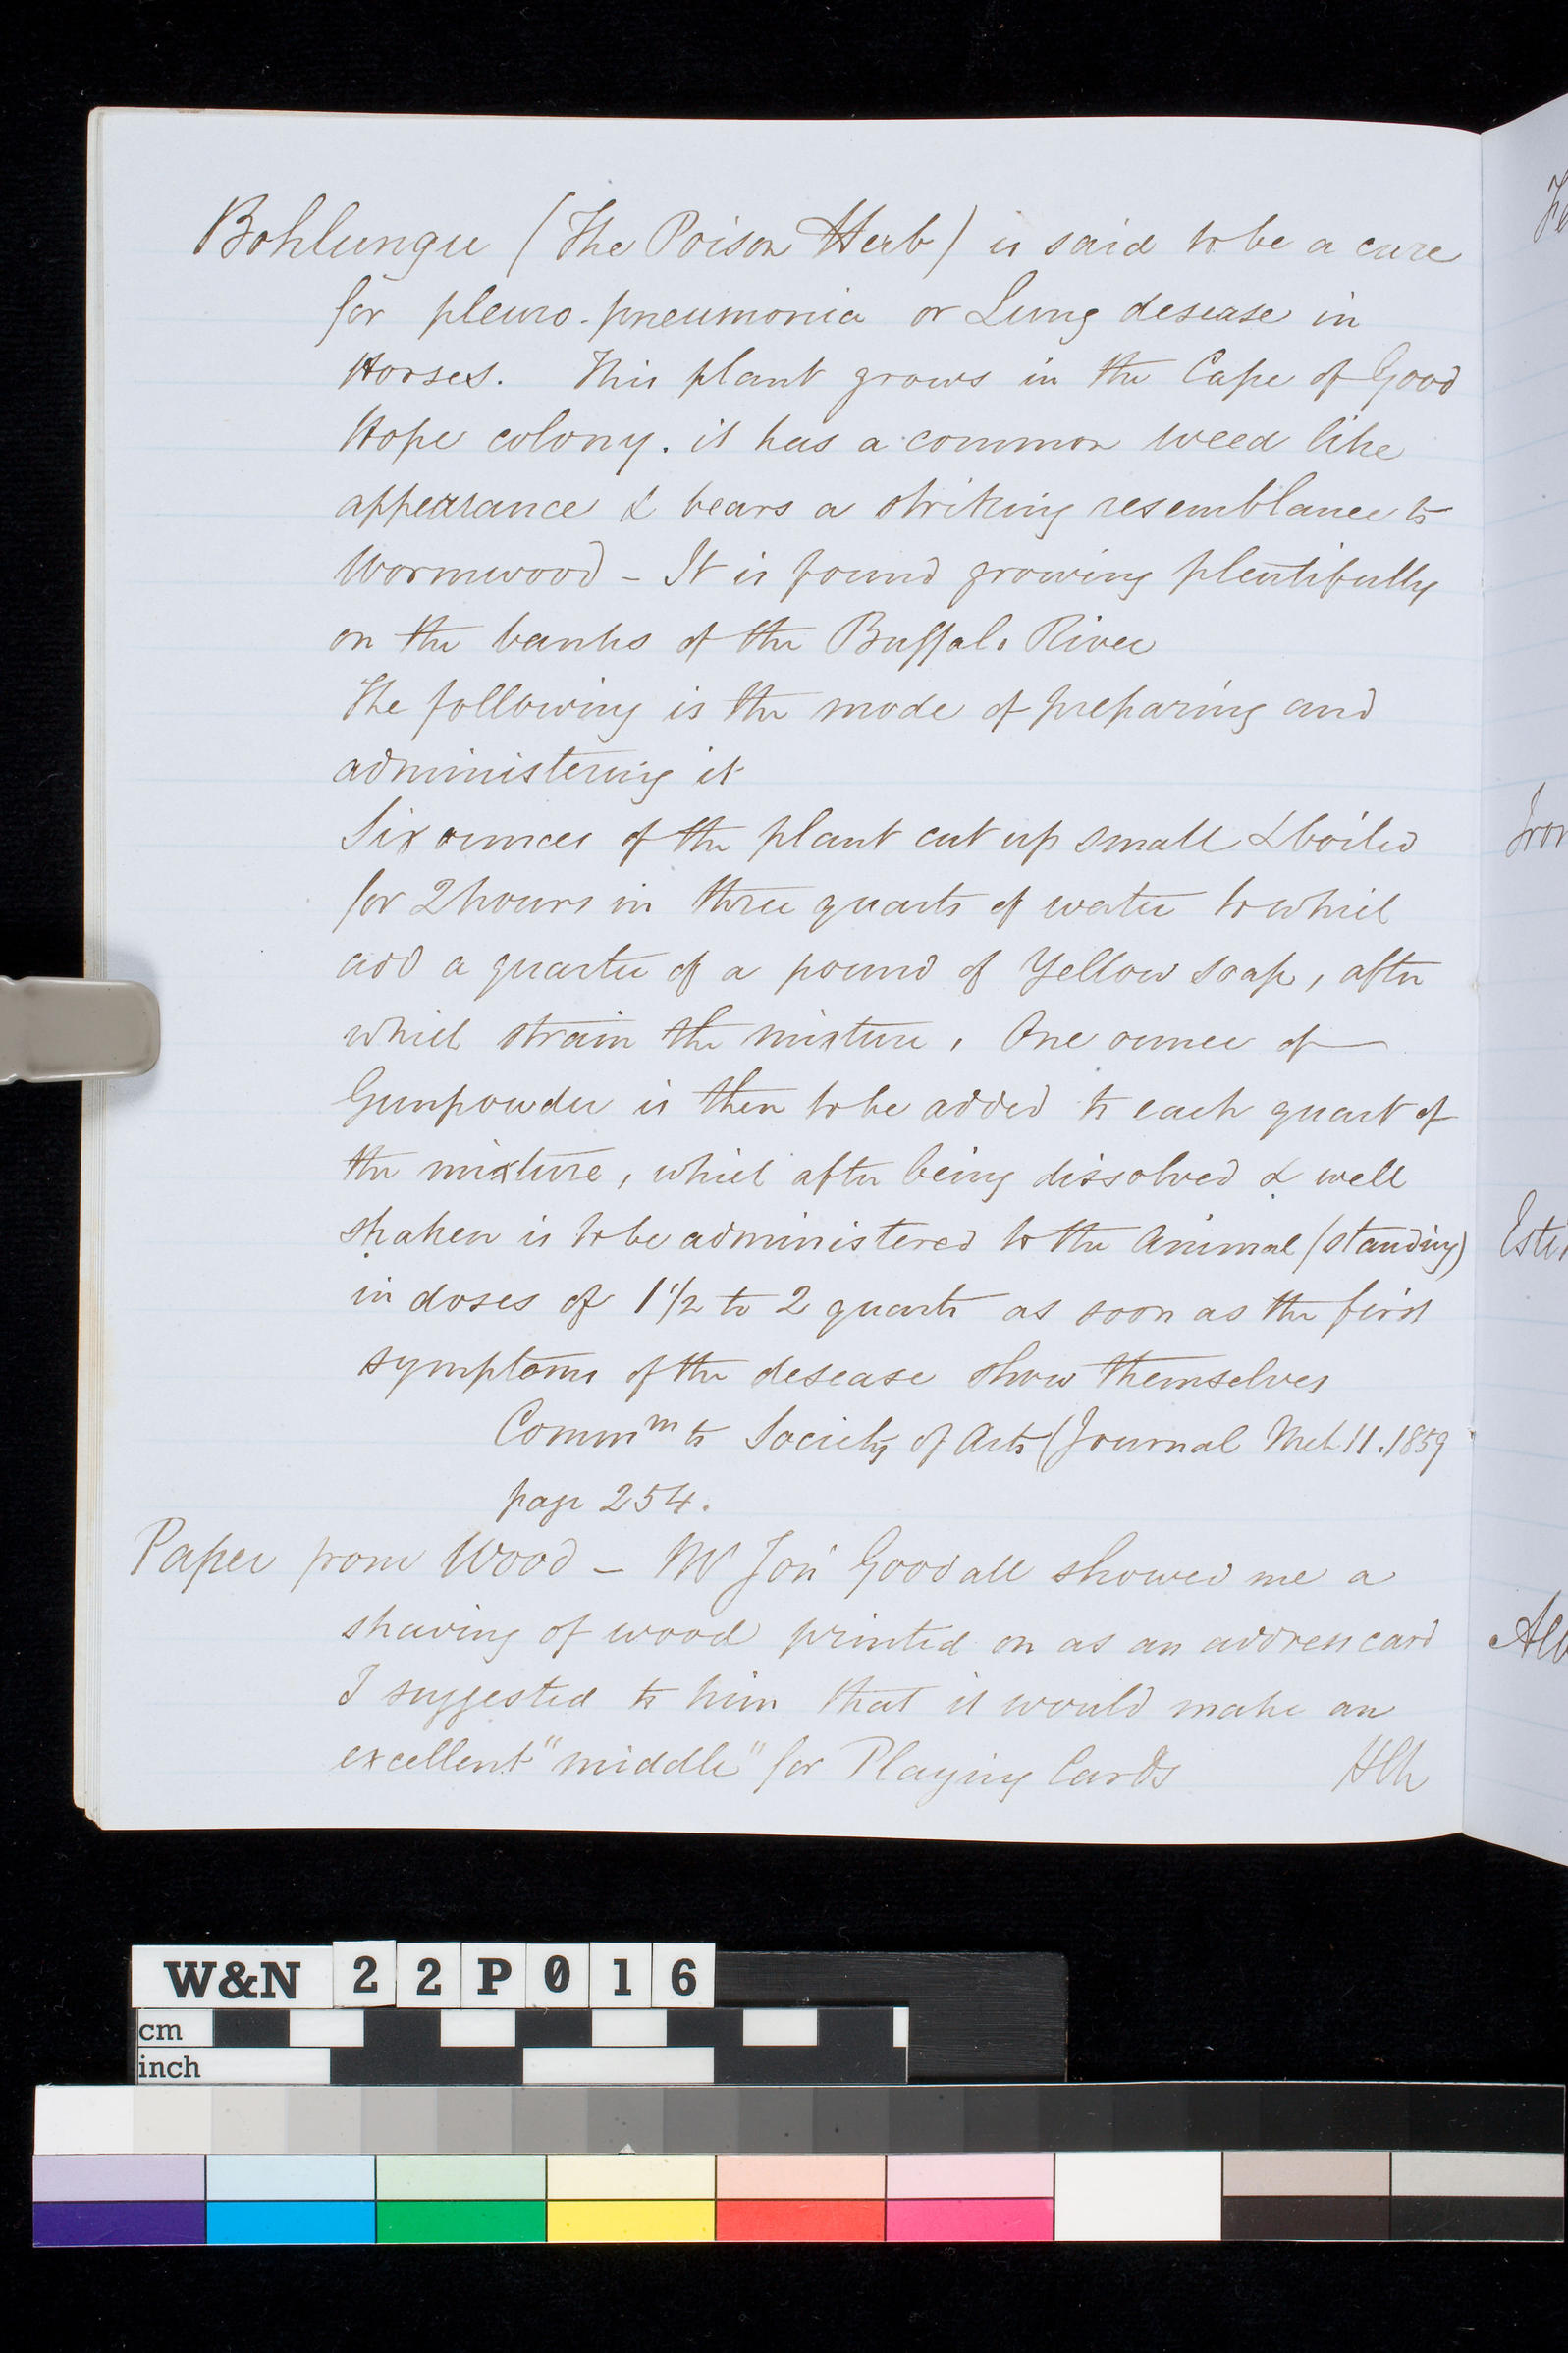 Bohlungu (The Poison Herb) is said to be a cure
for pleuro-pneumonia or Lung desease in
Horses. This plant grows in the Cape of Good
Hope colony. it has a common weed like
appearance & bears a striking resemblance to
Wormwood - It is found growing plentifully
on the banks of the Buffalo River
The following is the mode of preparing and
administering it
Six ounces of the plant cut up small & boiled
for 2 hours in three quarts of water to which
add a quarter of a pound of Yellow soap, after
which strain the mixture, One ounce of
Gunpowder is then to be added to each quart of
the mixture, which after being dissolved & well
shaken is to be administered to the Animal (standing)
in doses of 1 1/2 to 2 quarts as soon as the first
symptoms of the desease show themselves
Commm to Society of Arts (Journal Mch 11. 1859
page 254.
Paper from Wood - Mr Jon Goodall showed me a
shaving of wood printed on as an address card
I suggested to him that it would make an
excellent "middle" for Playing Cards
W&N 22P016
cm
inch